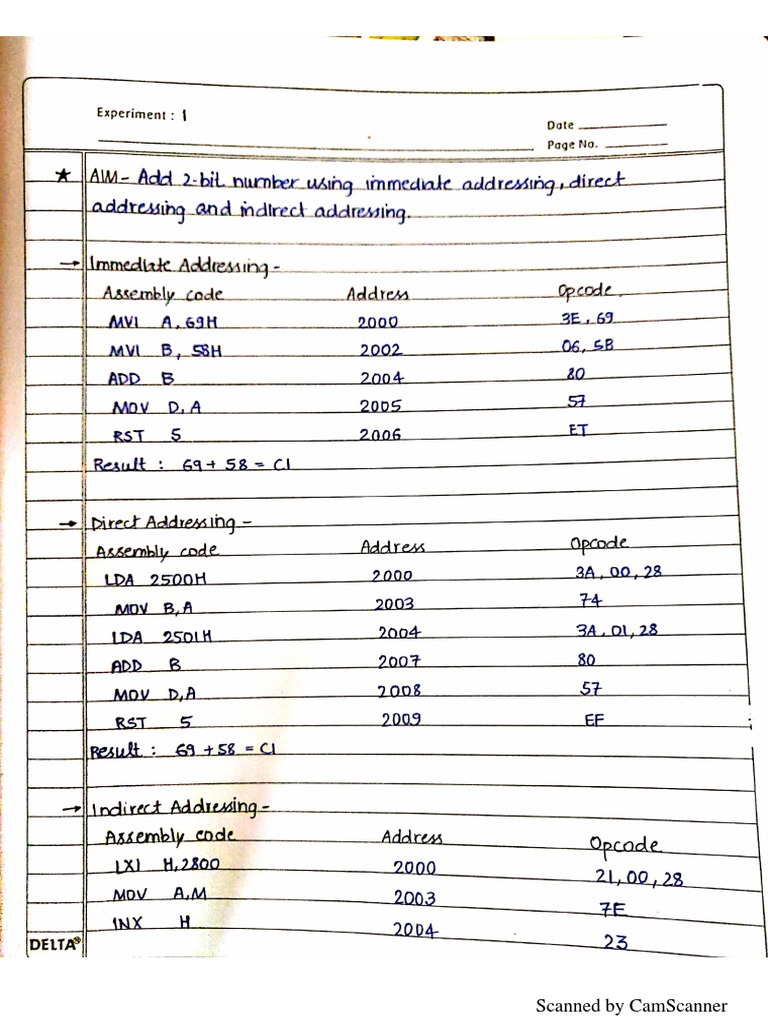 Experiment : 1
Date
Page No.
★ AIM - Add 2-bit number using immediate addressing, direct
addressing and indirect addressing.
→ Immediate Addressing -
Assembly code Address Opcode
MVI A, 69H 2000 3E, 69
MVI B, 58H 2002 06, 5B
ADD B 2004 80
MOV D, A 2005 57
RST 5 2006 ET
Result : 69 + 58 = C1
→ Direct Addressing -
Assembly code Address Opcode
LDA 2500H 2000 3A, 00, 28
MOV B, A 2003 74
LDA 2501H 2004 3A, 01, 28
ADD B 2007 80
MOV D, A 2008 57
RST 5 2009 EF
Result : 69 + 58 = C1
→ Indirect Addressing -
Assembly code Address Opcode
LXI H, 2800 2000 21, 00, 28
MOV A, M 2003 7E
INX H 2004 23
DELTA®
Scanned by CamScanner